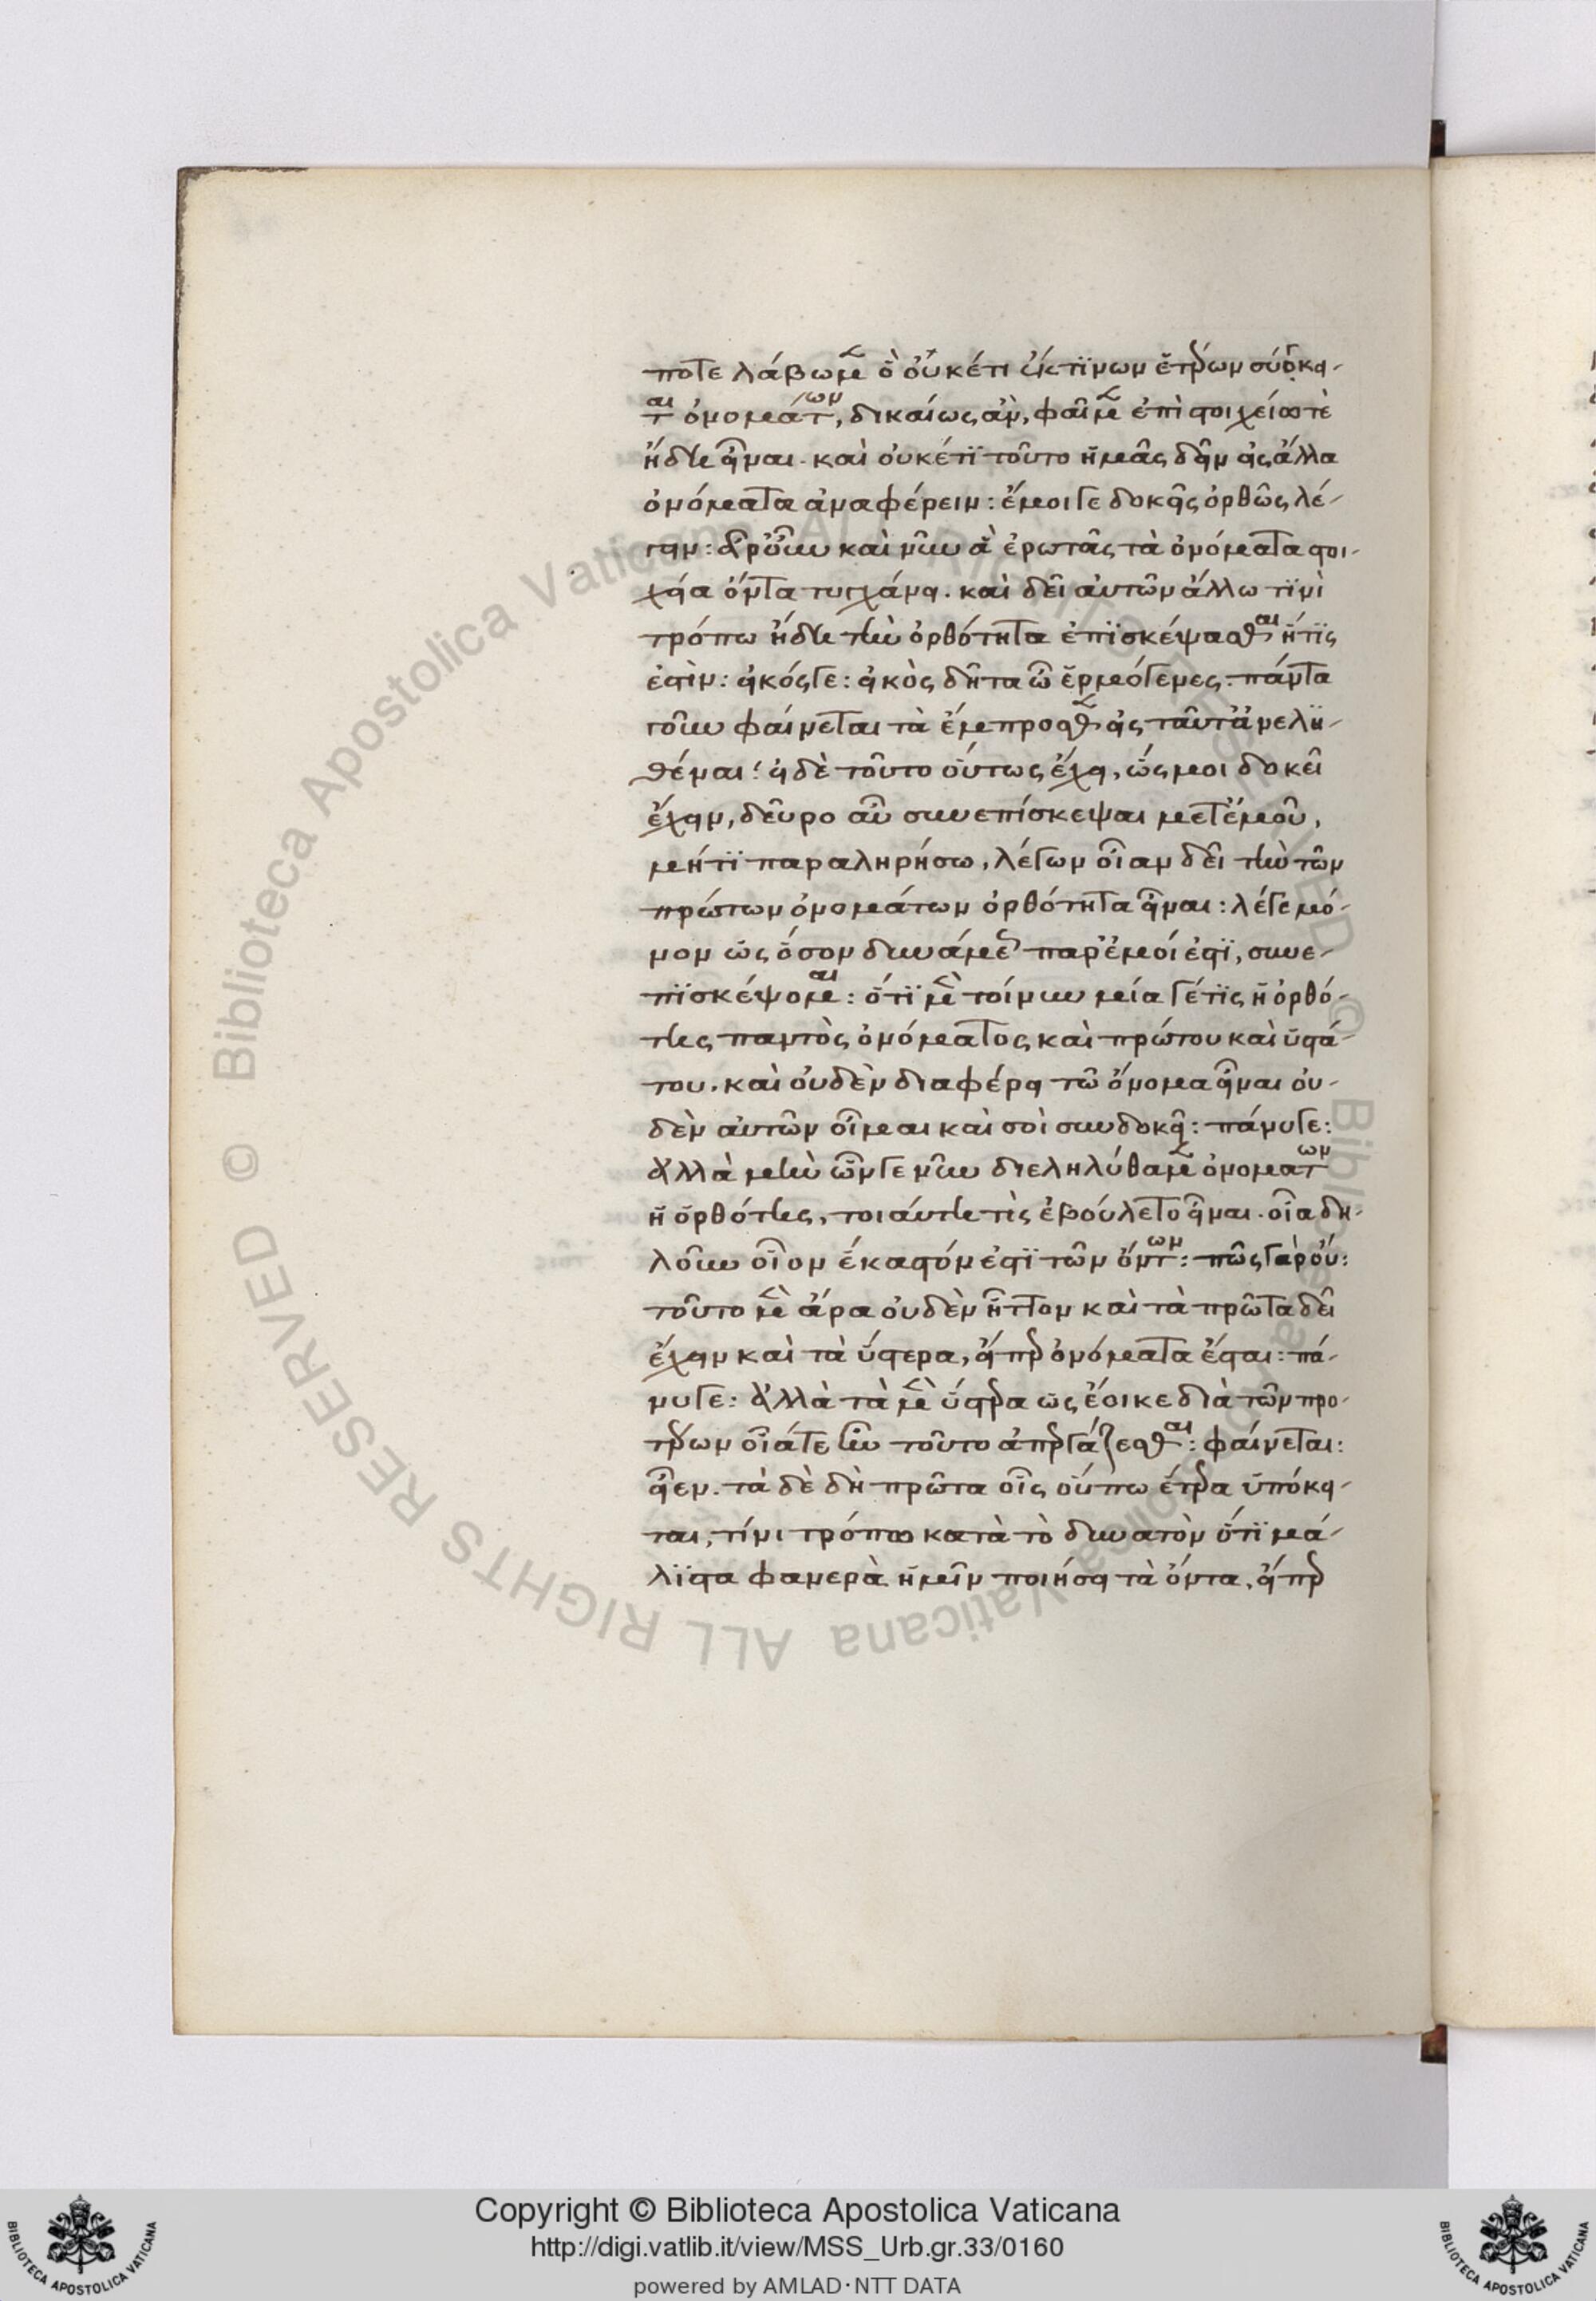 ποτε λάβωμεν ὃ οὐκέτι ἔκ τινων ἑτέρων σύγκει-
ται ὀνομάτων, δικαίως ἂν, φαῖμεν ἐπὶ στοιχείω τὲ
ἤδη εἶναι. καὶ οὐκέτι τοῦτο ἡμᾶς δεῖν εἰς ἄλλα
ὀνόματα ἀναφέρειν: ἔμοιγε δοκεῖς ὀρθῶς λέ-
γειν: ἆρ' οὖν καὶ νῦν ἃ ἐρωτᾶς τὰ ὀνόματα στοι-
χεῖα ὄντα τυγχάνει. καὶ δεῖ αὐτῶν ἄλλω τινὶ
τρόπω ἤδη τὴν ὀρθότητα ἐπισκέψασθαι ἥτις
ἐστίν: εἰκός γε: εἰκὸς δῆτα ὦ ἑρμόγενες. πάντα
γοῦν φαίνεται τὰ ἔμπροσθεν εἰς ταῦτ' ἀνελη-
θέναι: εἰ δὲ τοῦτο οὕτως ἔχει, ὥς μοι δοκεῖ
ἔχειν, δεῦρο αὖ συνεπίσκεψαι μετ' ἐμοῦ,
μή τι παραληρήσω, λέγων οἵαν δεῖ τὴν τῶν
πρώτων ὀνομάτων ὀρθότητα εἶναι: λέγε μό-
νον ὡς ὅσον δυνάμεως παρ' ἐμοί ἐστι, συνε-
πισκέψομαι: ὅτι μὲν τοίνυν μία γέ τις ἡ ὀρθό-
της παντὸς ὀνόματος καὶ πρώτου καὶ ὑστά-
του. καὶ οὐδὲν διαφέρει τῶ ὄνομα εἶναι οὐ-
δὲν αὐτῶν οἶμαι καὶ σοὶ συνδοκεῖ: πάνυγε:
ἀλλὰ μὴν ὧν γε νῦν διεληλύθαμεν ὀνομάτων
ἡ ὀρθότης, τοιαύτη τὶς ἐβούλετο εἶναι. οἵα δη-
λοῦν οἷον ἕκαστόν ἐστι τῶν ὄντων: πῶς γὰρ οὔ:
τοῦτο μὲν ἄρα οὐδὲν ἧττον καὶ τὰ πρῶτα δεῖ
ἔχειν καὶ τὰ ὕστερα, εἴπερ ὀνόματα ἔσται: πά-
νυγε: ἀλλὰ τὰ μὲν ὕστερα ὡς ἔοικε διὰ τῶν προ-
τέρων οἷά τε ἦν τοῦτο ἀπεργάζεσθαι: φαίνεται:
εἶεν. τὰ δὲ δὴ πρῶτα οἷς οὔπω ἕτερα ὑπόκει-
ται, τίνι τρόπω κατὰ τὸ δυνατὸν ὅτι μά-
λιστα φανερὰ ἡμῖν ποιήσει τὰ ὄντα, εἴπερ
Copyright © Biblioteca Apostolica Vaticana
http://digi.vatlib.it/view/MSS_Urb.gr.33/0160
powered by AMLAD·NTT DATA